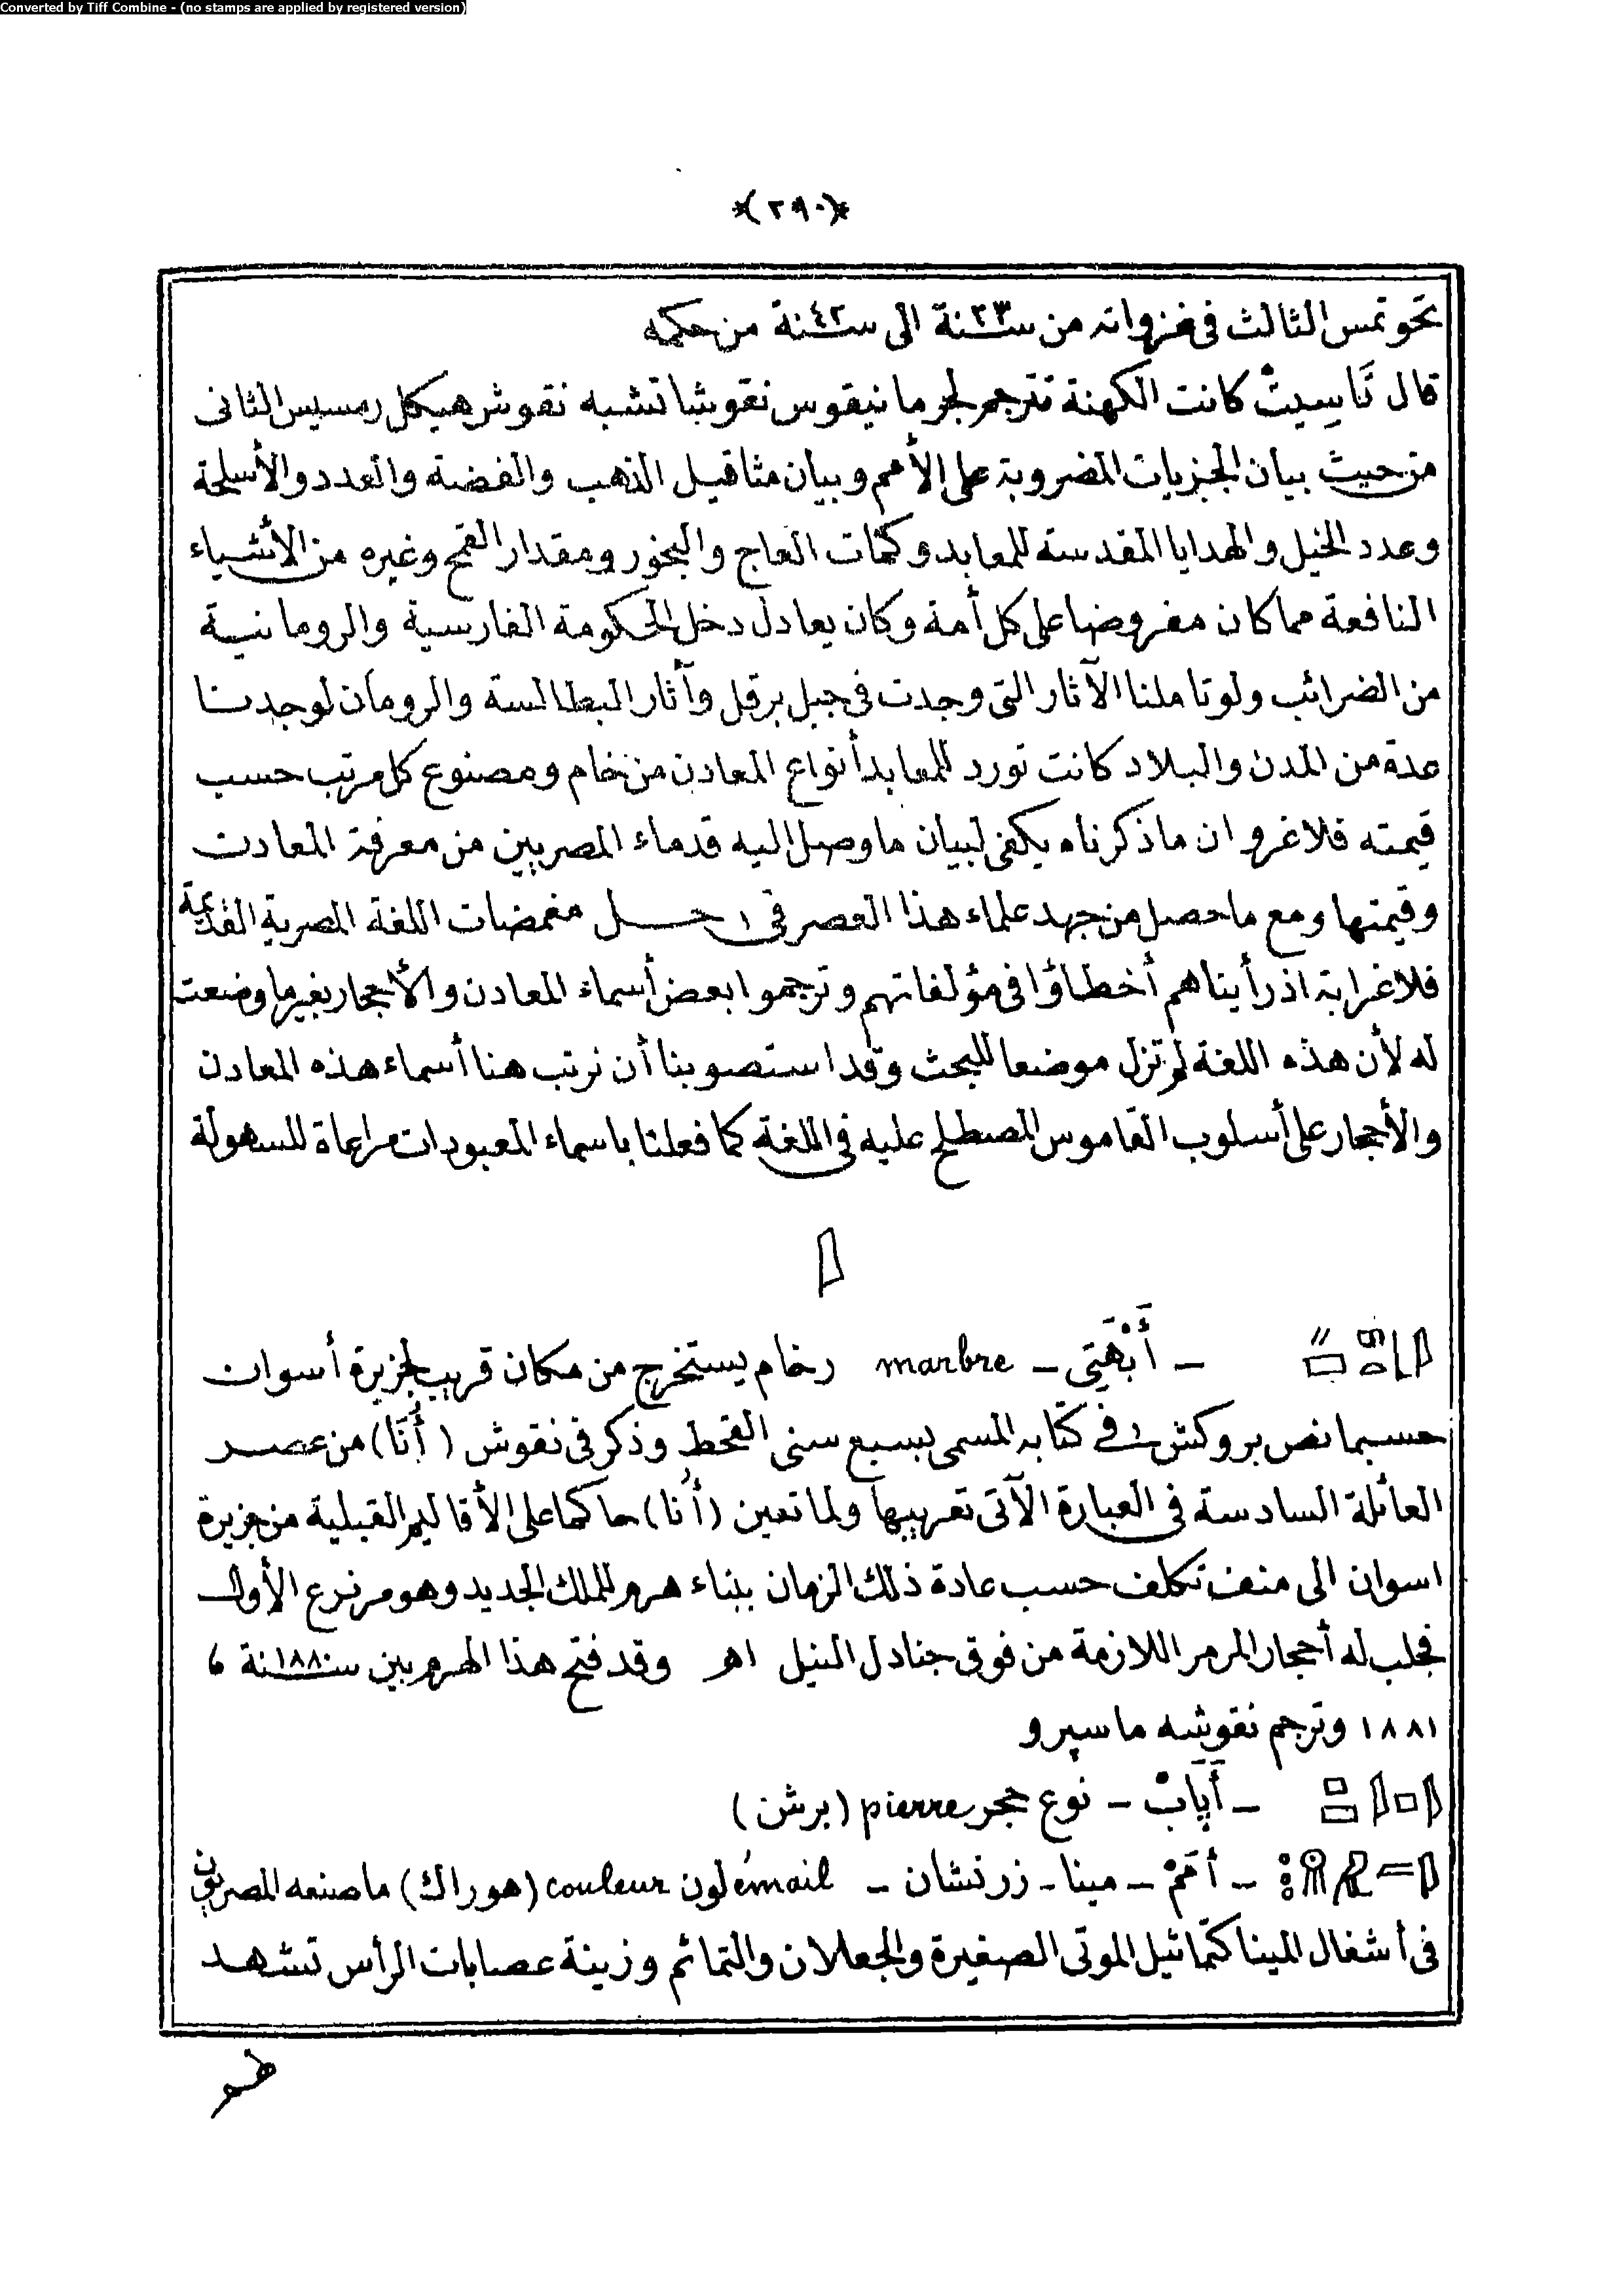 Converted by Tiff Combine - (no stamps are applied by registered version)
*(٢٩٠)*
تحوتمس الثالث فى غزواته من سنة ٢٣ الى سنة ٤٢ من حكمه
قال تَاسِيتْ كانت الكهنة تترجم لجرمانيقوس نقوشا تشبه نقوش هيكل رمسيس الثانى
من حيث بيان الجزيات المضروبة على الأمم وبيان مثاقيل الذهب والفضة والعدد والأسلحة
وعدد الخيل والهدايا المقدسة للمعابد وكميات العاج والبخور ومقدار القمح وغيره من الأشياء
النافعة مما كان مفروضا على كل أمة وكان يعادل دخل الحكومة الفارسية والرومانية
من الضرائب ولو تاملنا الآثار التى وجدت فى جبل برقل وآثار البطالسة والرومان لوجدنا
عدة من المدن والبلاد كانت تورد للمعابد أنواع المعادن من خام ومصنوع كل مرتب حسب
قيمته فلا غرو ان ما ذكرناه يكفى لبيان ما وصل اليه قدماء المصريين من معرفة المعادن
وقيمتها ومع ما حصل من جهد علماء هذا العصر فى حل مغمضات اللغة المصرية القديمة
فلا غرابة اذ رأيناهم أخطاؤا فى مؤلفاتهم وترجموا بعض أسماء المعادن والأحجار بغير ما وضعت
له لأن هذه اللغة لم تزل موضعا للبحث وقد استصوبنا أن نرتب هنا أسماء هذه المعادن
والأحجار على أسلوب القاموس المصطلح عليه فى اللغة كما فعلنا باسماء المعبودات مراعاة للسهولة
𓇋
– أَبْهَتِى – marbre رخام يستخرج من مكان قريب لجزيرة أسوان
حسبما نص بروكش فى كتابه المسمى بسبع سنى القحط وذكر فى نقوش (أُنَا) من عصر
العائلة السادسة فى العبارة الآتى تعريبها ولما تعين (أُنا) حاكما على الأقاليم القبلية من جزيرة
اسوان الى منف تكلف حسب عادة ذلك الزمان ببناء هرم للملك الجديد وهو مرنرع الأول
فجلب له أحجار المرمر اللازمة من فوق جنادل النيل اهـ وقد فتح هذا الهرم بين سنة ١٨٨٠ ،
١٨٨١ وترجم نقوشه ماسپرو
– أَپَابْ – نوع حجر pierre (برشن)
– أمَمْ – مينا – زرنشان – émail لون couleur (هوراك) ما صنعه المصريون
فى أشغال المينا كتماثيل الموتى الصغيرة والجعلان والتمائم وزينة عصابات الرأس تشهد